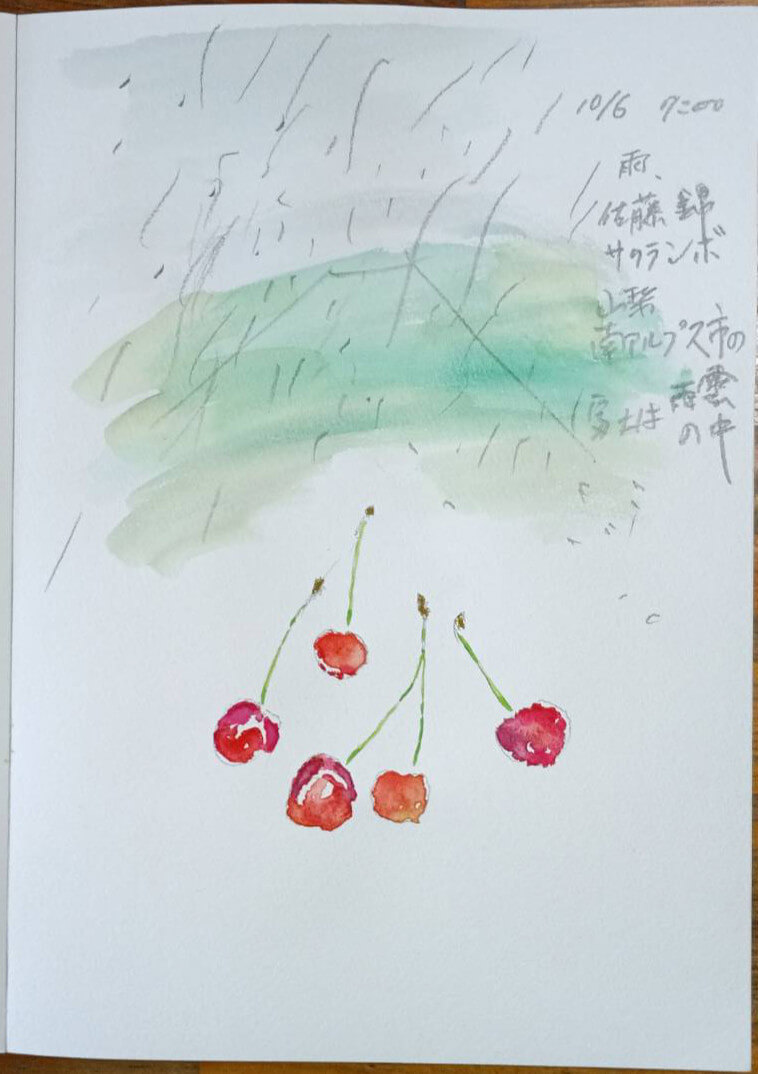 10/6 7:00
雨、
佐藤錦
サクランボ
山梨
南アルプス市の
富士は雨雲
の中